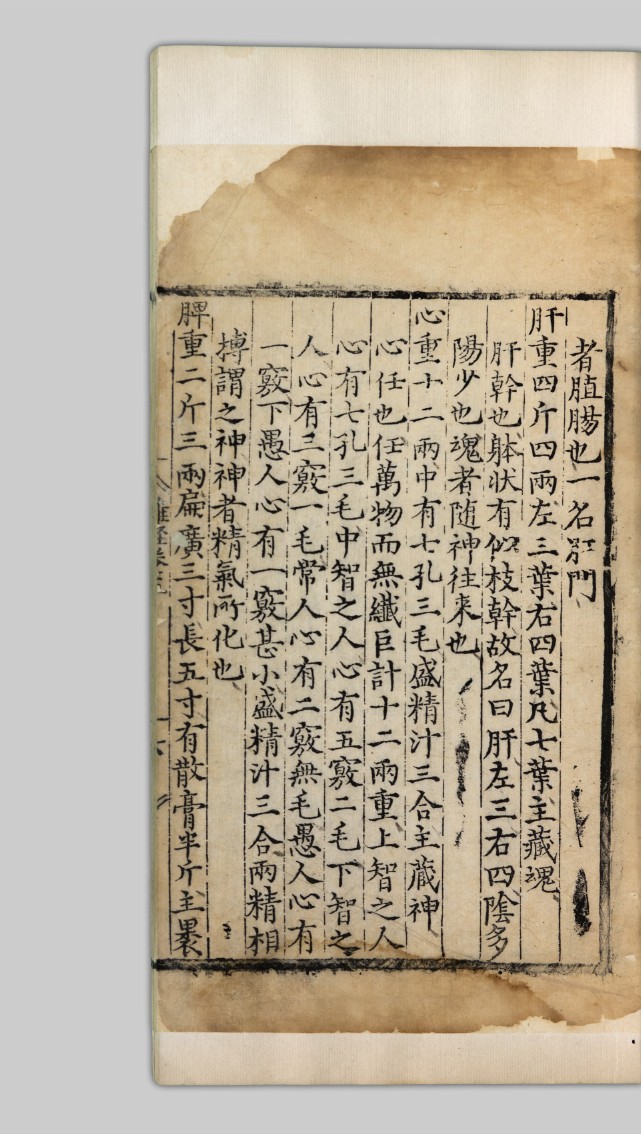 者膱腸也一名肛門
肝重四斤四兩左三葉右四葉凡七葉主藏魂
肝幹也躰状有似枝幹故名曰肝左三右四陰多
陽少也魂者随神往来也
心重十二兩中有七孔三毛盛精汁三合主蔵神
心任也任萬物而無纖巨計十二兩重上智之人
心有七孔三毛中智之人心有五竅二毛下智之
人心有三竅一毛常人心有二竅無毛愚人心有
一竅下愚人心有一竅甚小盛精汁三合兩精相
摶謂之神神者精氣所化也
脾重二斤三兩扁廣三寸長五寸有散膏半斤主褁